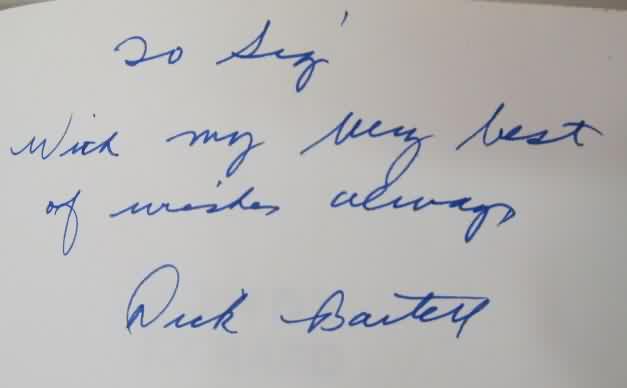 To Sig
With my very best
of wishes always
Dick Bartell